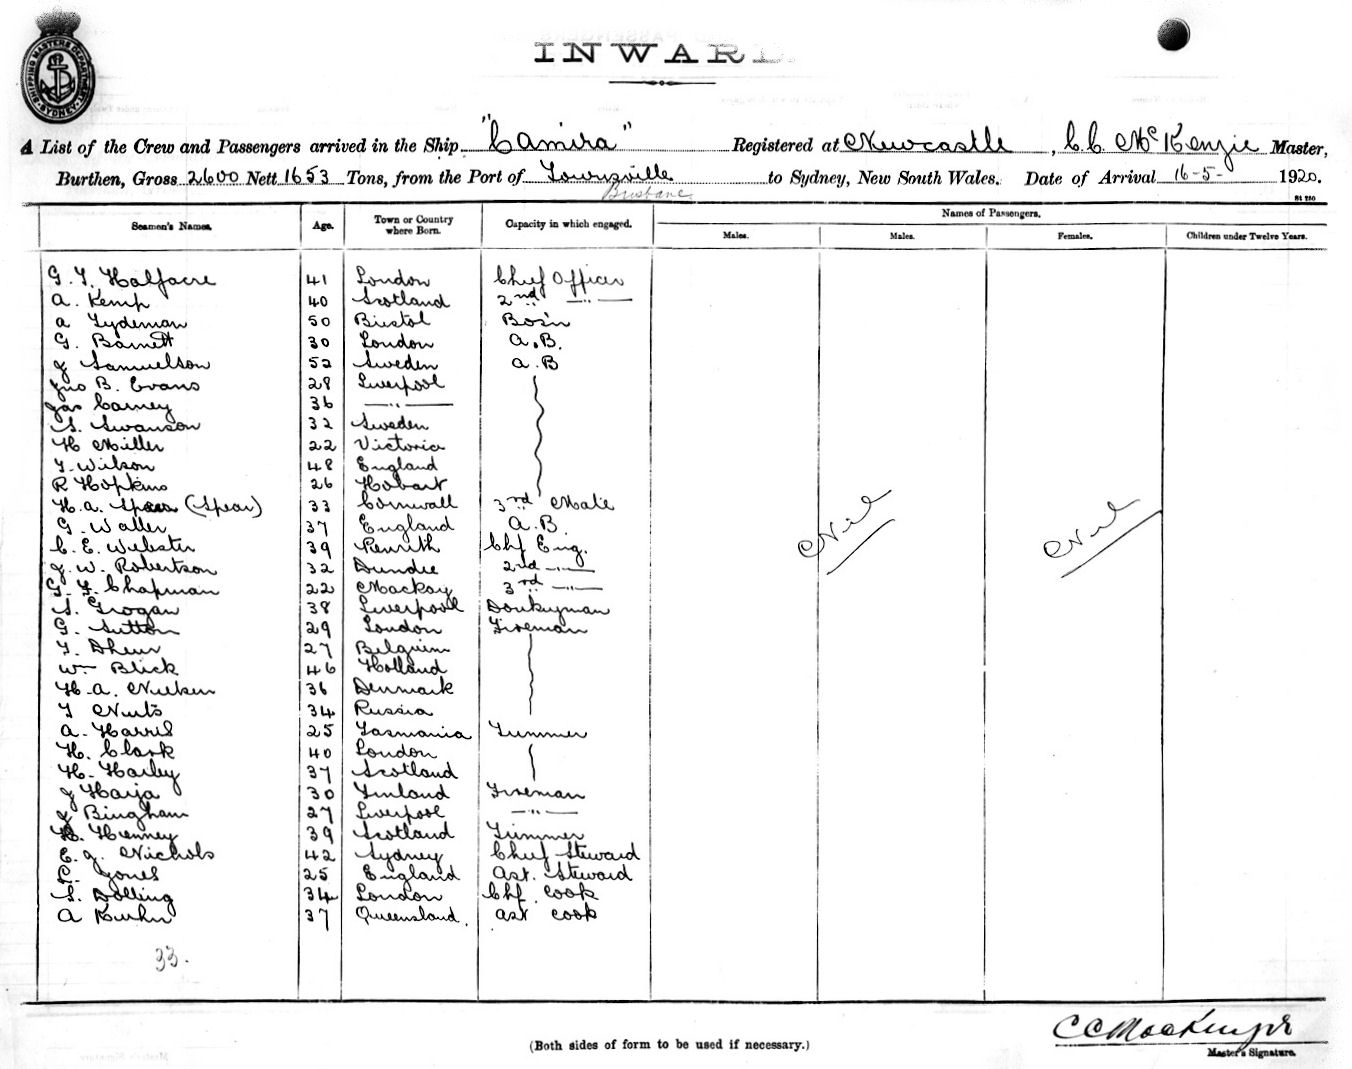 SHIPPING MASTERS DEPARTMENT SYDNEY
INWARD
A List of the Crew and Passengers arrived in the Ship "Camira" Registered at Newcastle, C. C. McKenzie Master,
Burthen, Gross 2600 Nett 1653 Tons, from the Port of Townsville to Sydney, New South Wales. Date of Arrival 16-5- 1920.
Brisbane
Seamen's Names. Age. Town or Country where Born. Capacity in which engaged. Names of Passengers.
Males. Males. Females. Children under Twelve Years.
G. T. Halfacre 41 London Chief Officer
A. Kemp 40 Scotland 2nd —"—
A Tydeman 50 Bristol Bos'n
G. Barnett 30 London A.B.
J Samuelson 52 Sweden A.B
Jno B. Evans 28 Liverpool
Jas Carney 36 —"—
S. Swanson 32 Sweden
H Miller 22 Victoria
T. Wilson 48 England
R Hopkins 26 Hobart
H. A. (Spear) 33 Cornwall 3rd Mate
G. Waller 37 England A.B.
C. E. Webster 39 Penrith Chf Eng.
J. W. Robertson 32 Dundee 2nd —"—
G. F. Chapman 22 Mackay 3rd —"—
S. Grogan 38 Liverpool Donkyman
G. Sutton 29 London Fireman
T. 27 Belgium
Wm Blick 46 Holland
H. A. Nielsen 36 Denmark
T 34 Russia
A. Harris 25 Tasmania Trimmer
H. Clark 40 London
H. Harley 37 Scotland
J Harja 30 Finland Fireman
J Bingham 27 Liverpool —"—
H. Henney 39 Scotland Trimmer
E. J. Nichols 42 Sydney Chief Steward
R. Jones 25 England Ast. Steward
S. Dolling 34 London Chf. Cook
A Kuhn 37 Queensland. Ast Cook
Nil Nil
33.
C C MacKenzie
Master's Signature.
(Both sides of form to be used if necessary.)